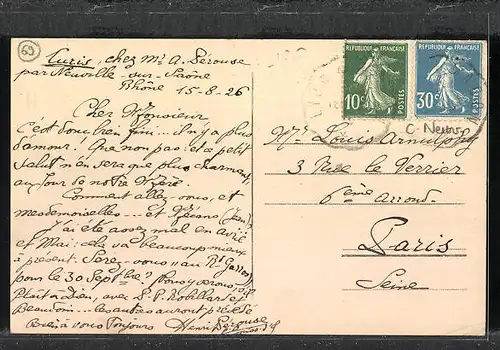 69
Curis, chez Mr A. Sérouse
par Neuville-sur-Saône
Rhône 15-8-26
Cher Monsieur
C'est donc bien fini... il n'y a plus
d'amour! Que non pas: et ce petit
salut n'en sera que plus charmant,
au jour de notre
Comment allez-vous, et
mesdemoiselles... et (Jean)?
J'ai été assez mal en avril
et Mai: cela va beaucoup mieux
à présent. Serez-vous au
pour le 30 Septbre? Nous y serons, s'il
plaît à Dieu, avec
les autres auront
Bien à vous Toujours Henri Sérouse
RÉPUBLIQUE FRANÇAISE
10c
POSTES
RÉPUBLIQUE FRANÇAISE
30c
POSTES
Mr Louis
3 Rue Le Verrier
6ème Arrond.
Paris
Seine